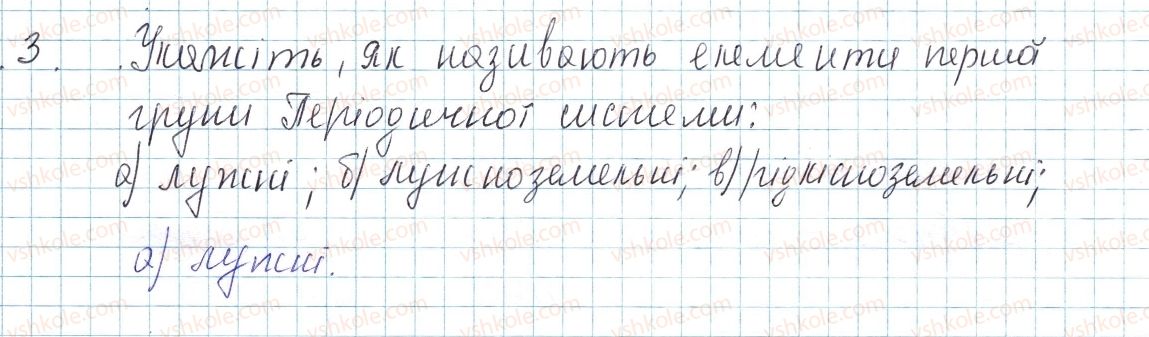 3. Укажіть, як називають елементи першої
групи Періодичної системи:
а) лужні; б) лужноземельні; в) рідкісноземельні;
а) лужні.